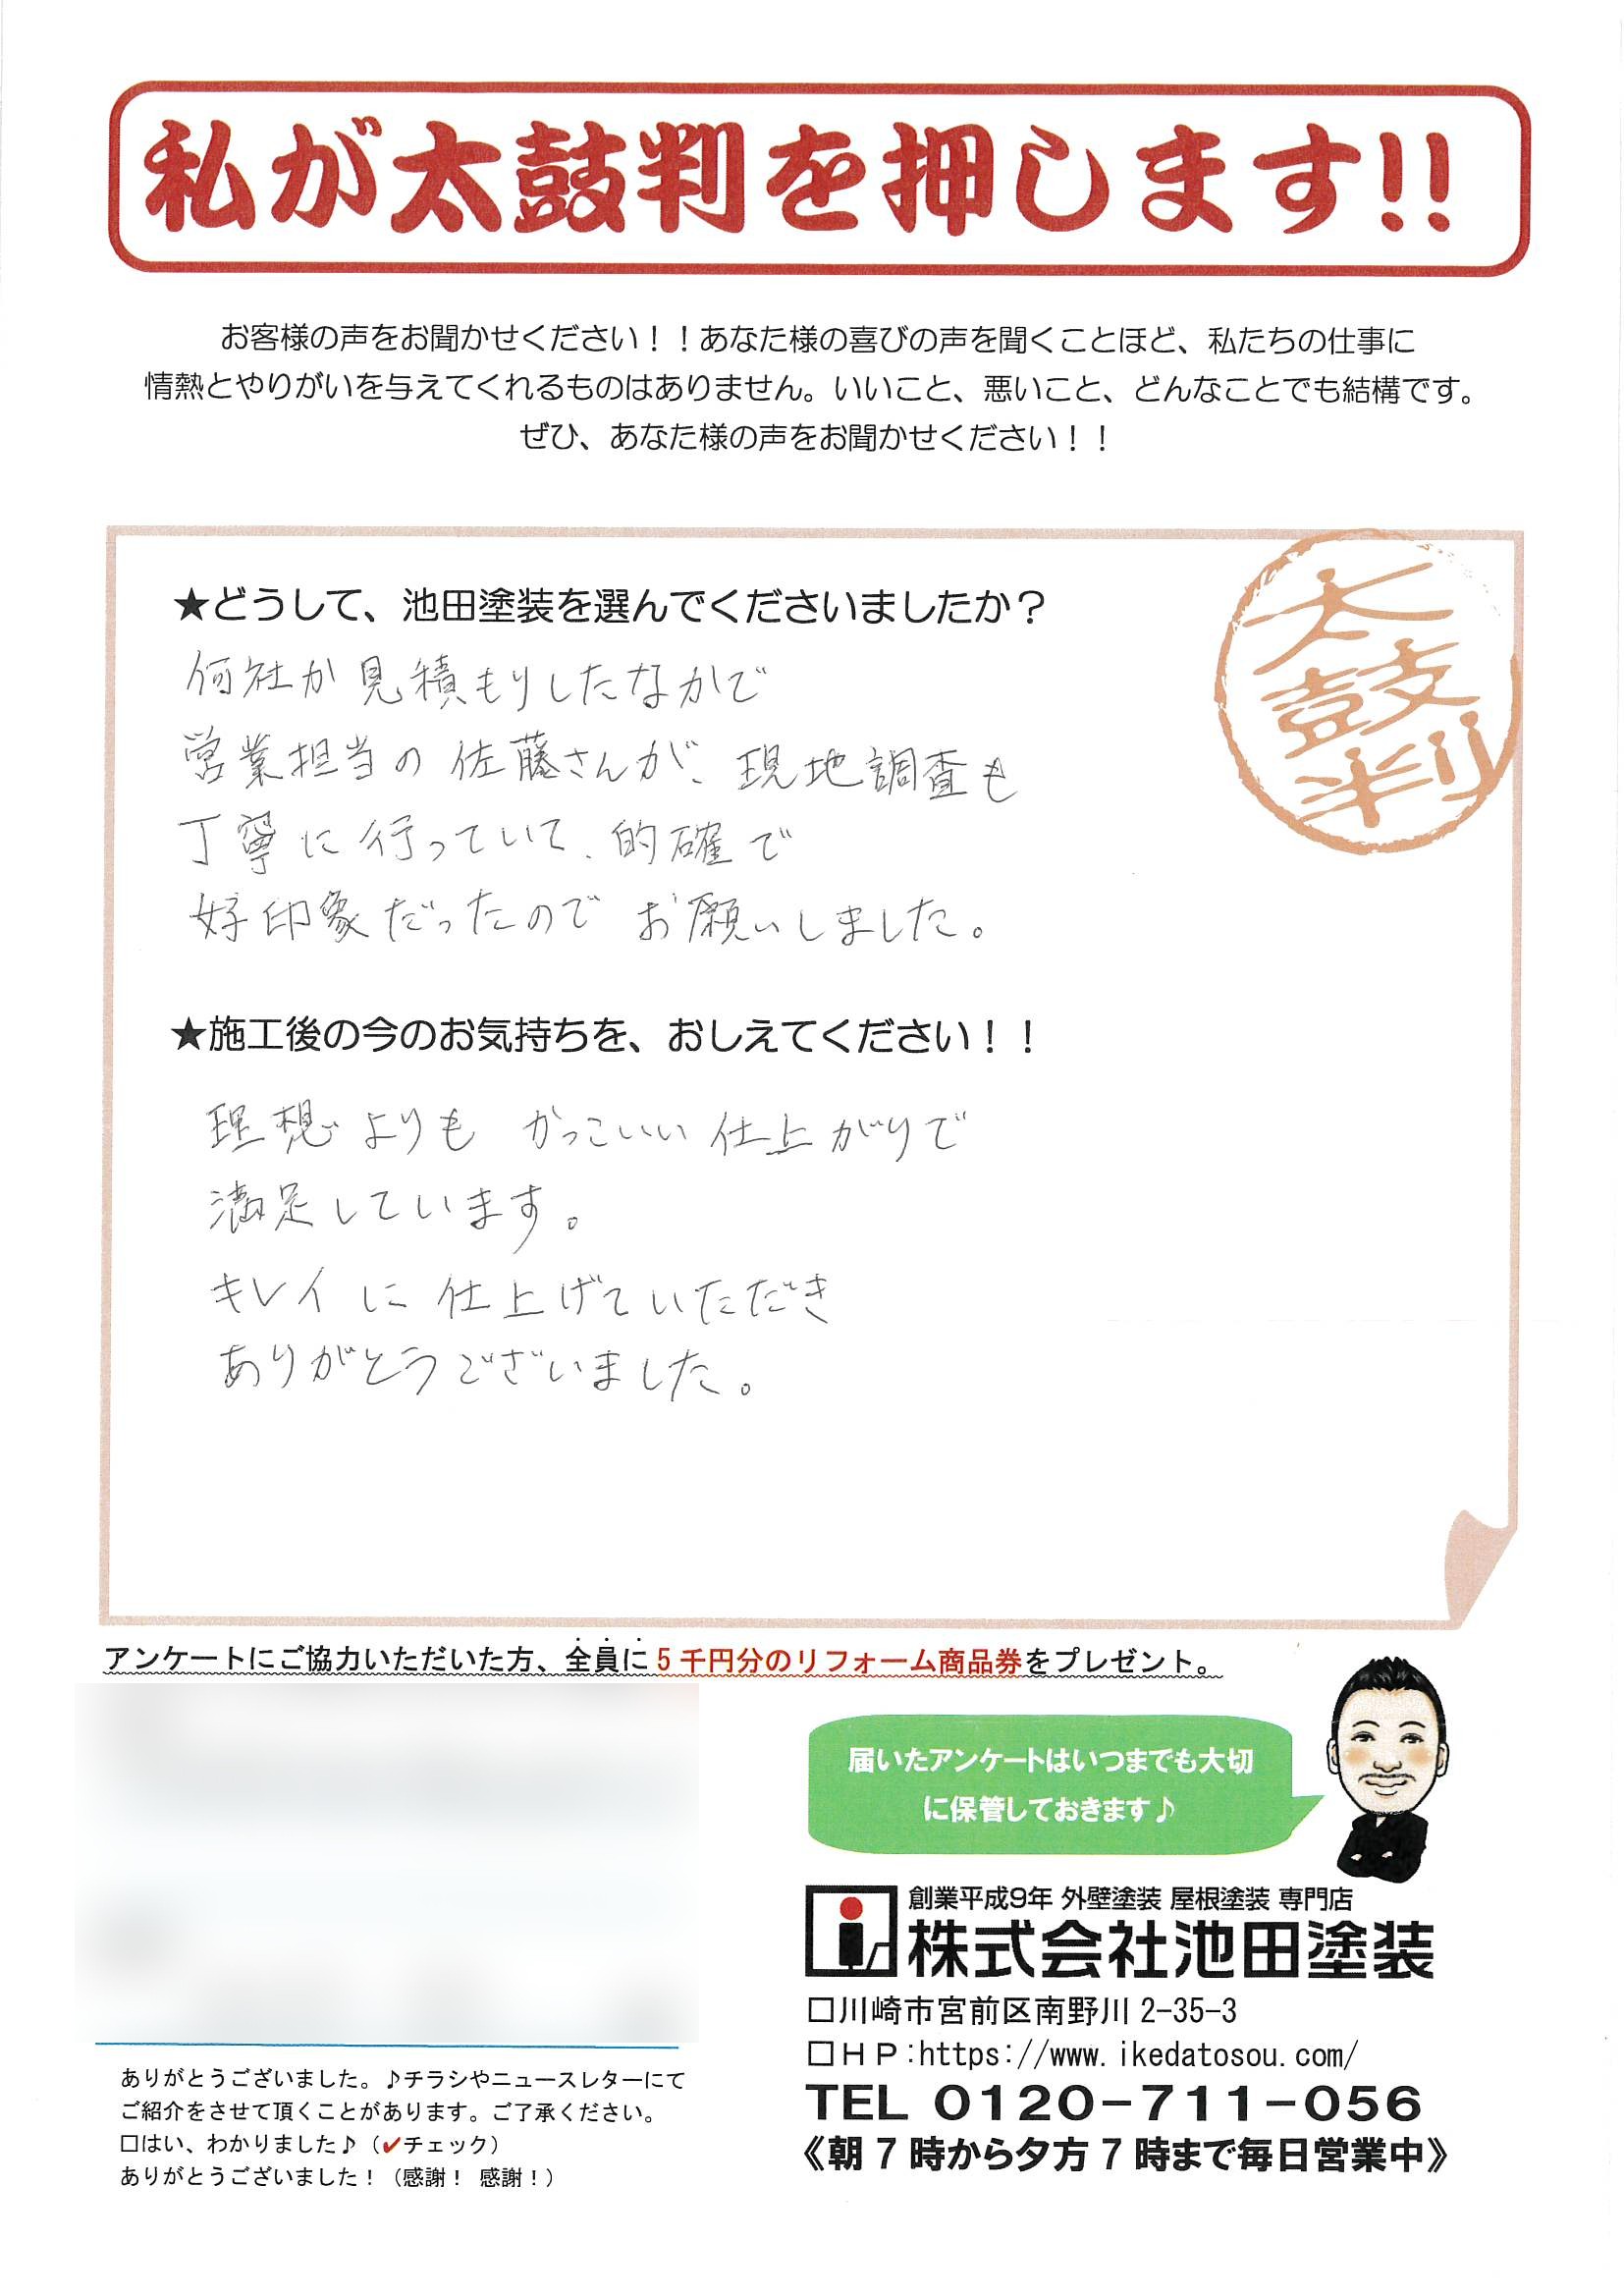 私が太鼓判を押します!!
お客様の声をお聞かせください！！あなた様の喜びの声を聞くことほど、私たちの仕事に
情熱とやりがいを与えてくれるものはありません。いいこと、悪いこと、どんなことでも結構です。
ぜひ、あなた様の声をお聞かせください！！
太鼓判
★どうして、池田塗装を選んでくださいましたか？
何社か見積もりしたなかで
営業担当の佐藤さんが、現地調査も
丁寧に行っていて、的確で
好印象だったのでお願いしました。
★施工後の今のお気持ちを、おしえてください！！
理想よりもかっこいい仕上がりで
満足しています。
キレイに仕上げていただき
ありがとうございました。
アンケートにご協力いただいた方、全員に5千円分のリフォーム商品券をプレゼント。
届いたアンケートはいつまでも大切
に保管しておきます♪
創業平成9年 外壁塗装 屋根塗装 専門店
株式会社池田塗装
□川崎市宮前区南野川2-35-3
□ＨＰ:https://www.ikedatosou.com/
TEL 0120-711-056
《朝7時から夕方7時まで毎日営業中》
ありがとうございました。♪チラシやニュースレターにて
ご紹介をさせて頂くことがあります。ご了承ください。
□はい、わかりました♪（✔チェック）
ありがとうございました！（感謝！感謝！）